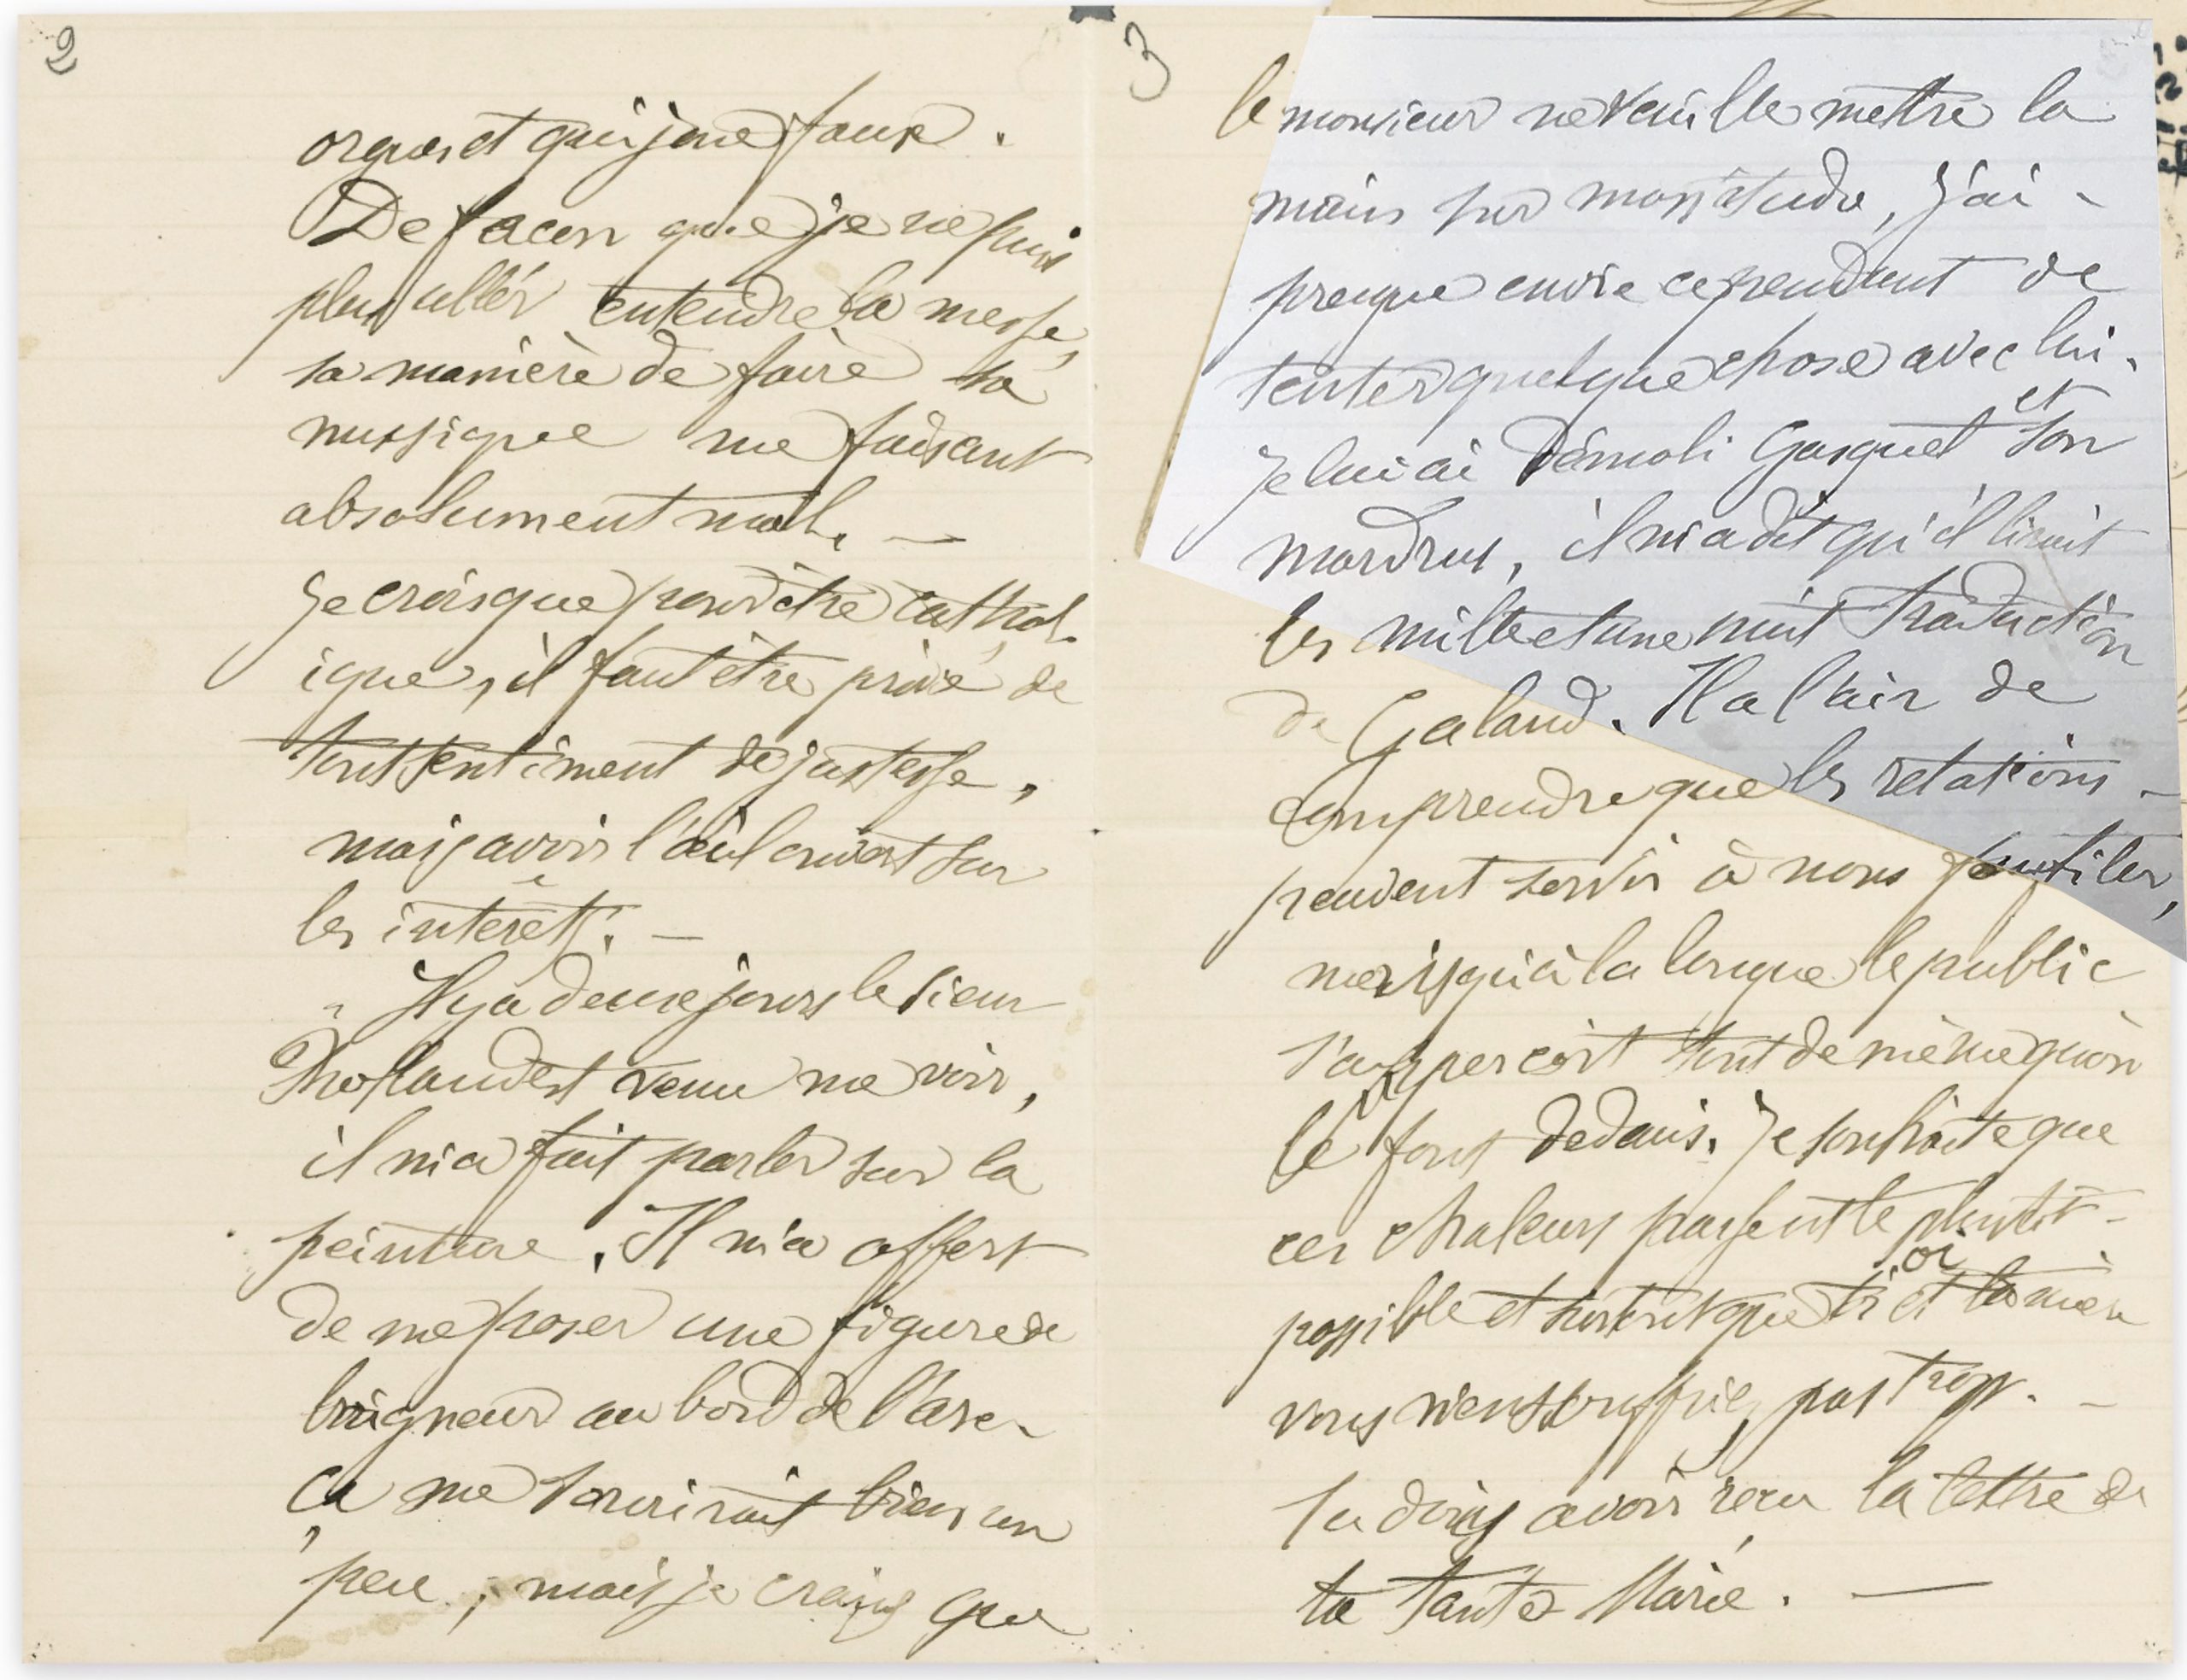 2
orgues et qui joue faux.
De façon que je ne puis
plus aller entendre la messe,
sa manière de faire sa
mussique me faisant
absolument mal. —
Je crois que pour être cathol-
ique, il faut être privé de
tout sentiment de justesse,
mais avoir l'œil ouvert sur
les intérêts. —
Il y a deux jours le sieur
Rolland est venu me voir,
il m'a fait parler sur la
peinture. Il m'a offert
de me poser une figure de
baigneur au bord de l'arc.
Ça me sourirait bien un
peu, mais je crains que
3
le monsieur ne veuille mettre la
main sur mon étude, j'ai
presque envie cependant de
tenter quelque chose avec lui.
Je lui ai démoli Gasquet et son
Mardrus, il m'a dit qu'il lirait
les mille et une nuit traduction
de Galand. Il a l'air de
comprendre que les relations
peuvent servir à nous faufiler,
mais qu'à la longue le public
s'apperçoit tout de même qu'on
le fout dedans. Je souhaite que
ces chaleurs passent le plutôt
possible et surtout que toi et ta mère
vous n'en souffriez pas trop. —
Tu dois avoir reçu la lettre de
ta tante Marie. —